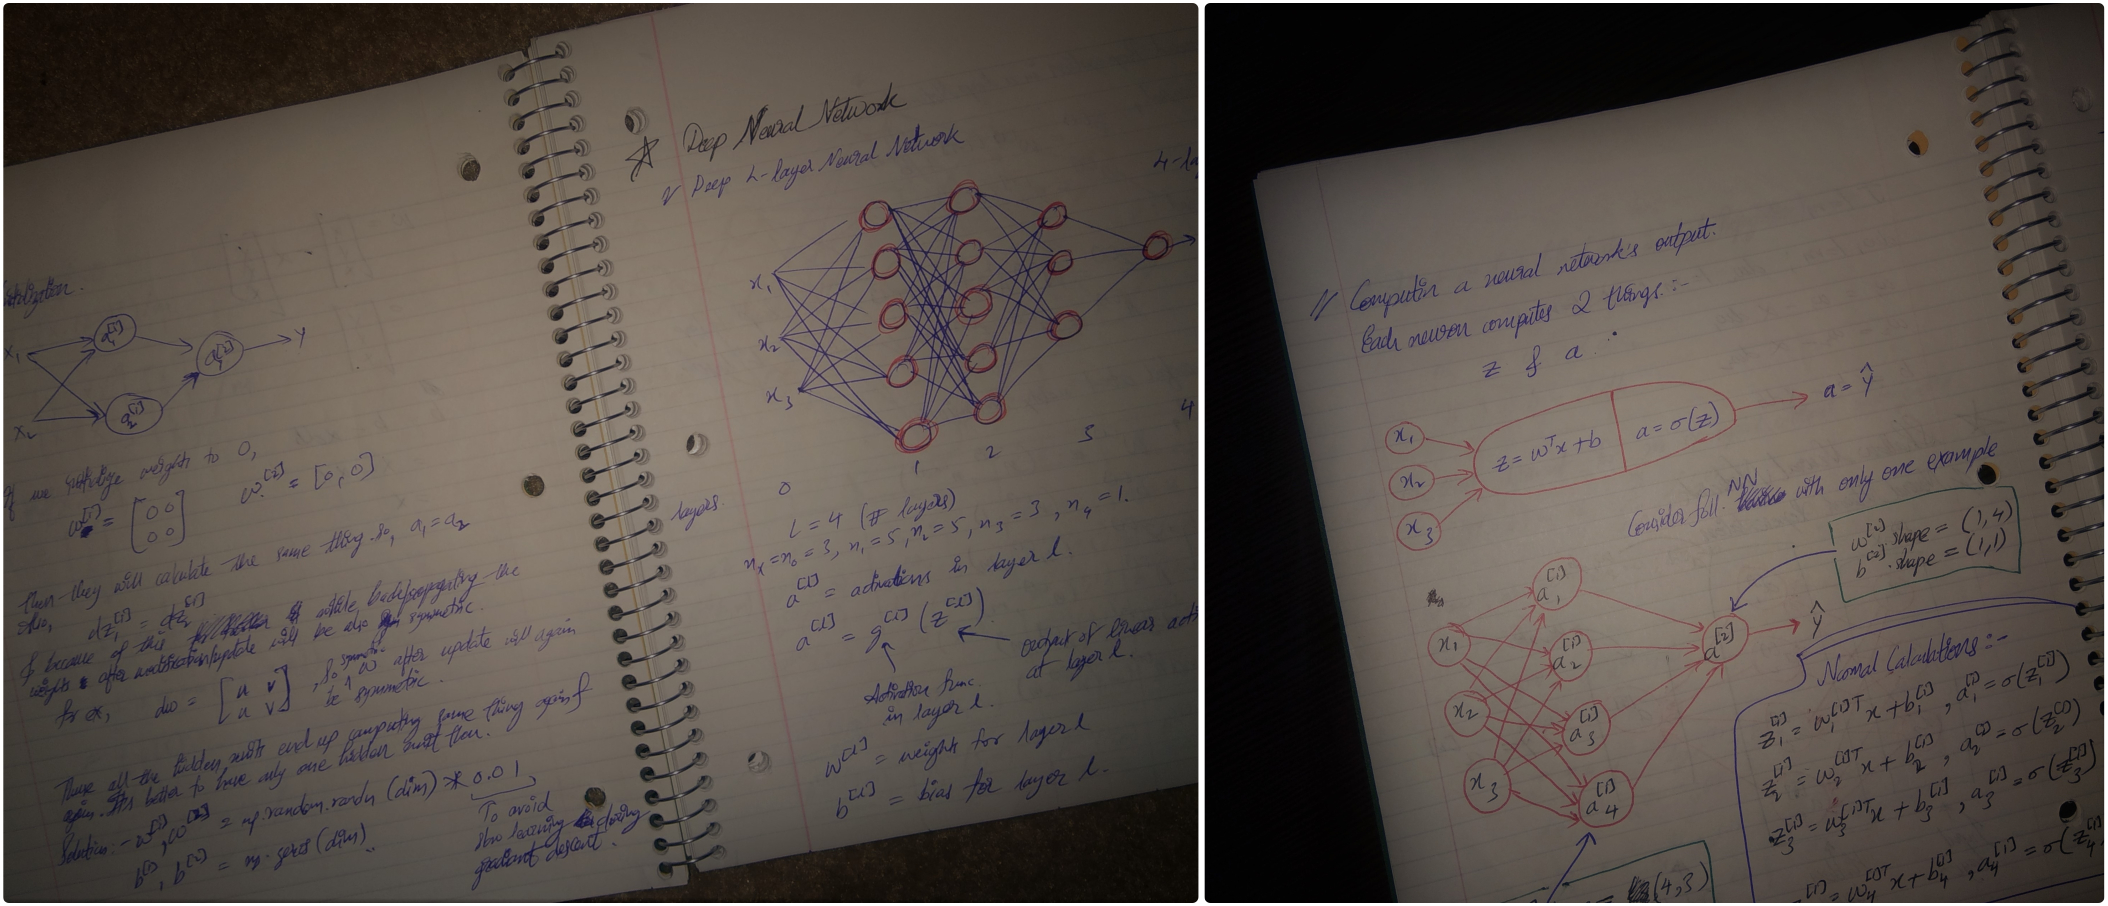 x₁
x₂
a₁^[1]
a₂^[1]
a₁^[2]
y
If we initialize weights to 0,
w^[1] = [0 0
0 0]
w^[2] = [0, 0]
Then they will calculate the same thing. So, a₁ = a₂
Also, dz₁^[1] = dz₂^[1]
& because of this while backpropagating the
weights after modification/update will be also symmetric.
for ex, dw = [u v
u v] , so symmetric w after update will again
be symmetric.
These all the hidden units end up computing same thing again &
again. It's better to have only one hidden unit then.
Solution:- w^[1], w^[2] = np.random.randn (dim) * 0.01
b^[1], b^[2] = np.zeros (dim).
To avoid
slow learning during
gradient descent.
Deep Neural Network
Deep L-layer Neural Network
4-la
x₁
x₂
x₃
4
layers. 0 1 2 3
L = 4 (# layers)
n_x = n₀ = 3, n₁ = 5, n₂ = 5, n₃ = 3, n₄ = 1.
a^[l] = activations in layer l.
a^[l] = g^[l] (z^[l])
output of linear acti
at layer l.
Activation func.
in layer l.
w^[l] = weights for layer l
b^[l] = bias for layer l.
// Computin a neural network's output.
Each neuron computes 2 things:-
z & a
x₁
x₂
x₃
z = wᵀx + b
a = σ(z)
a = ŷ
Consider foll. NN with only one example
w^[2] shape = (1,4)
b^[2] shape = (1,1)
x₁
x₂
x₃
a₁^[1]
a₂^[1]
a₃^[1]
a₄^[1]
a^[2]
ŷ
Normal Calculations:-
z₁^[1] = w₁^[1]T x + b₁^[1] , a₁^[1] = σ(z₁^[1])
z₂^[1] = w₂^[1]T x + b₂^[1] , a₂^[1] = σ(z₂^[1])
z₃^[1] = w₃^[1]T x + b₃^[1] , a₃^[1] = σ(z₃^[1])
= w₄^[1]T x + b₄^[1] , a₄^[1] = σ(z₄^[1]
= (4,3)